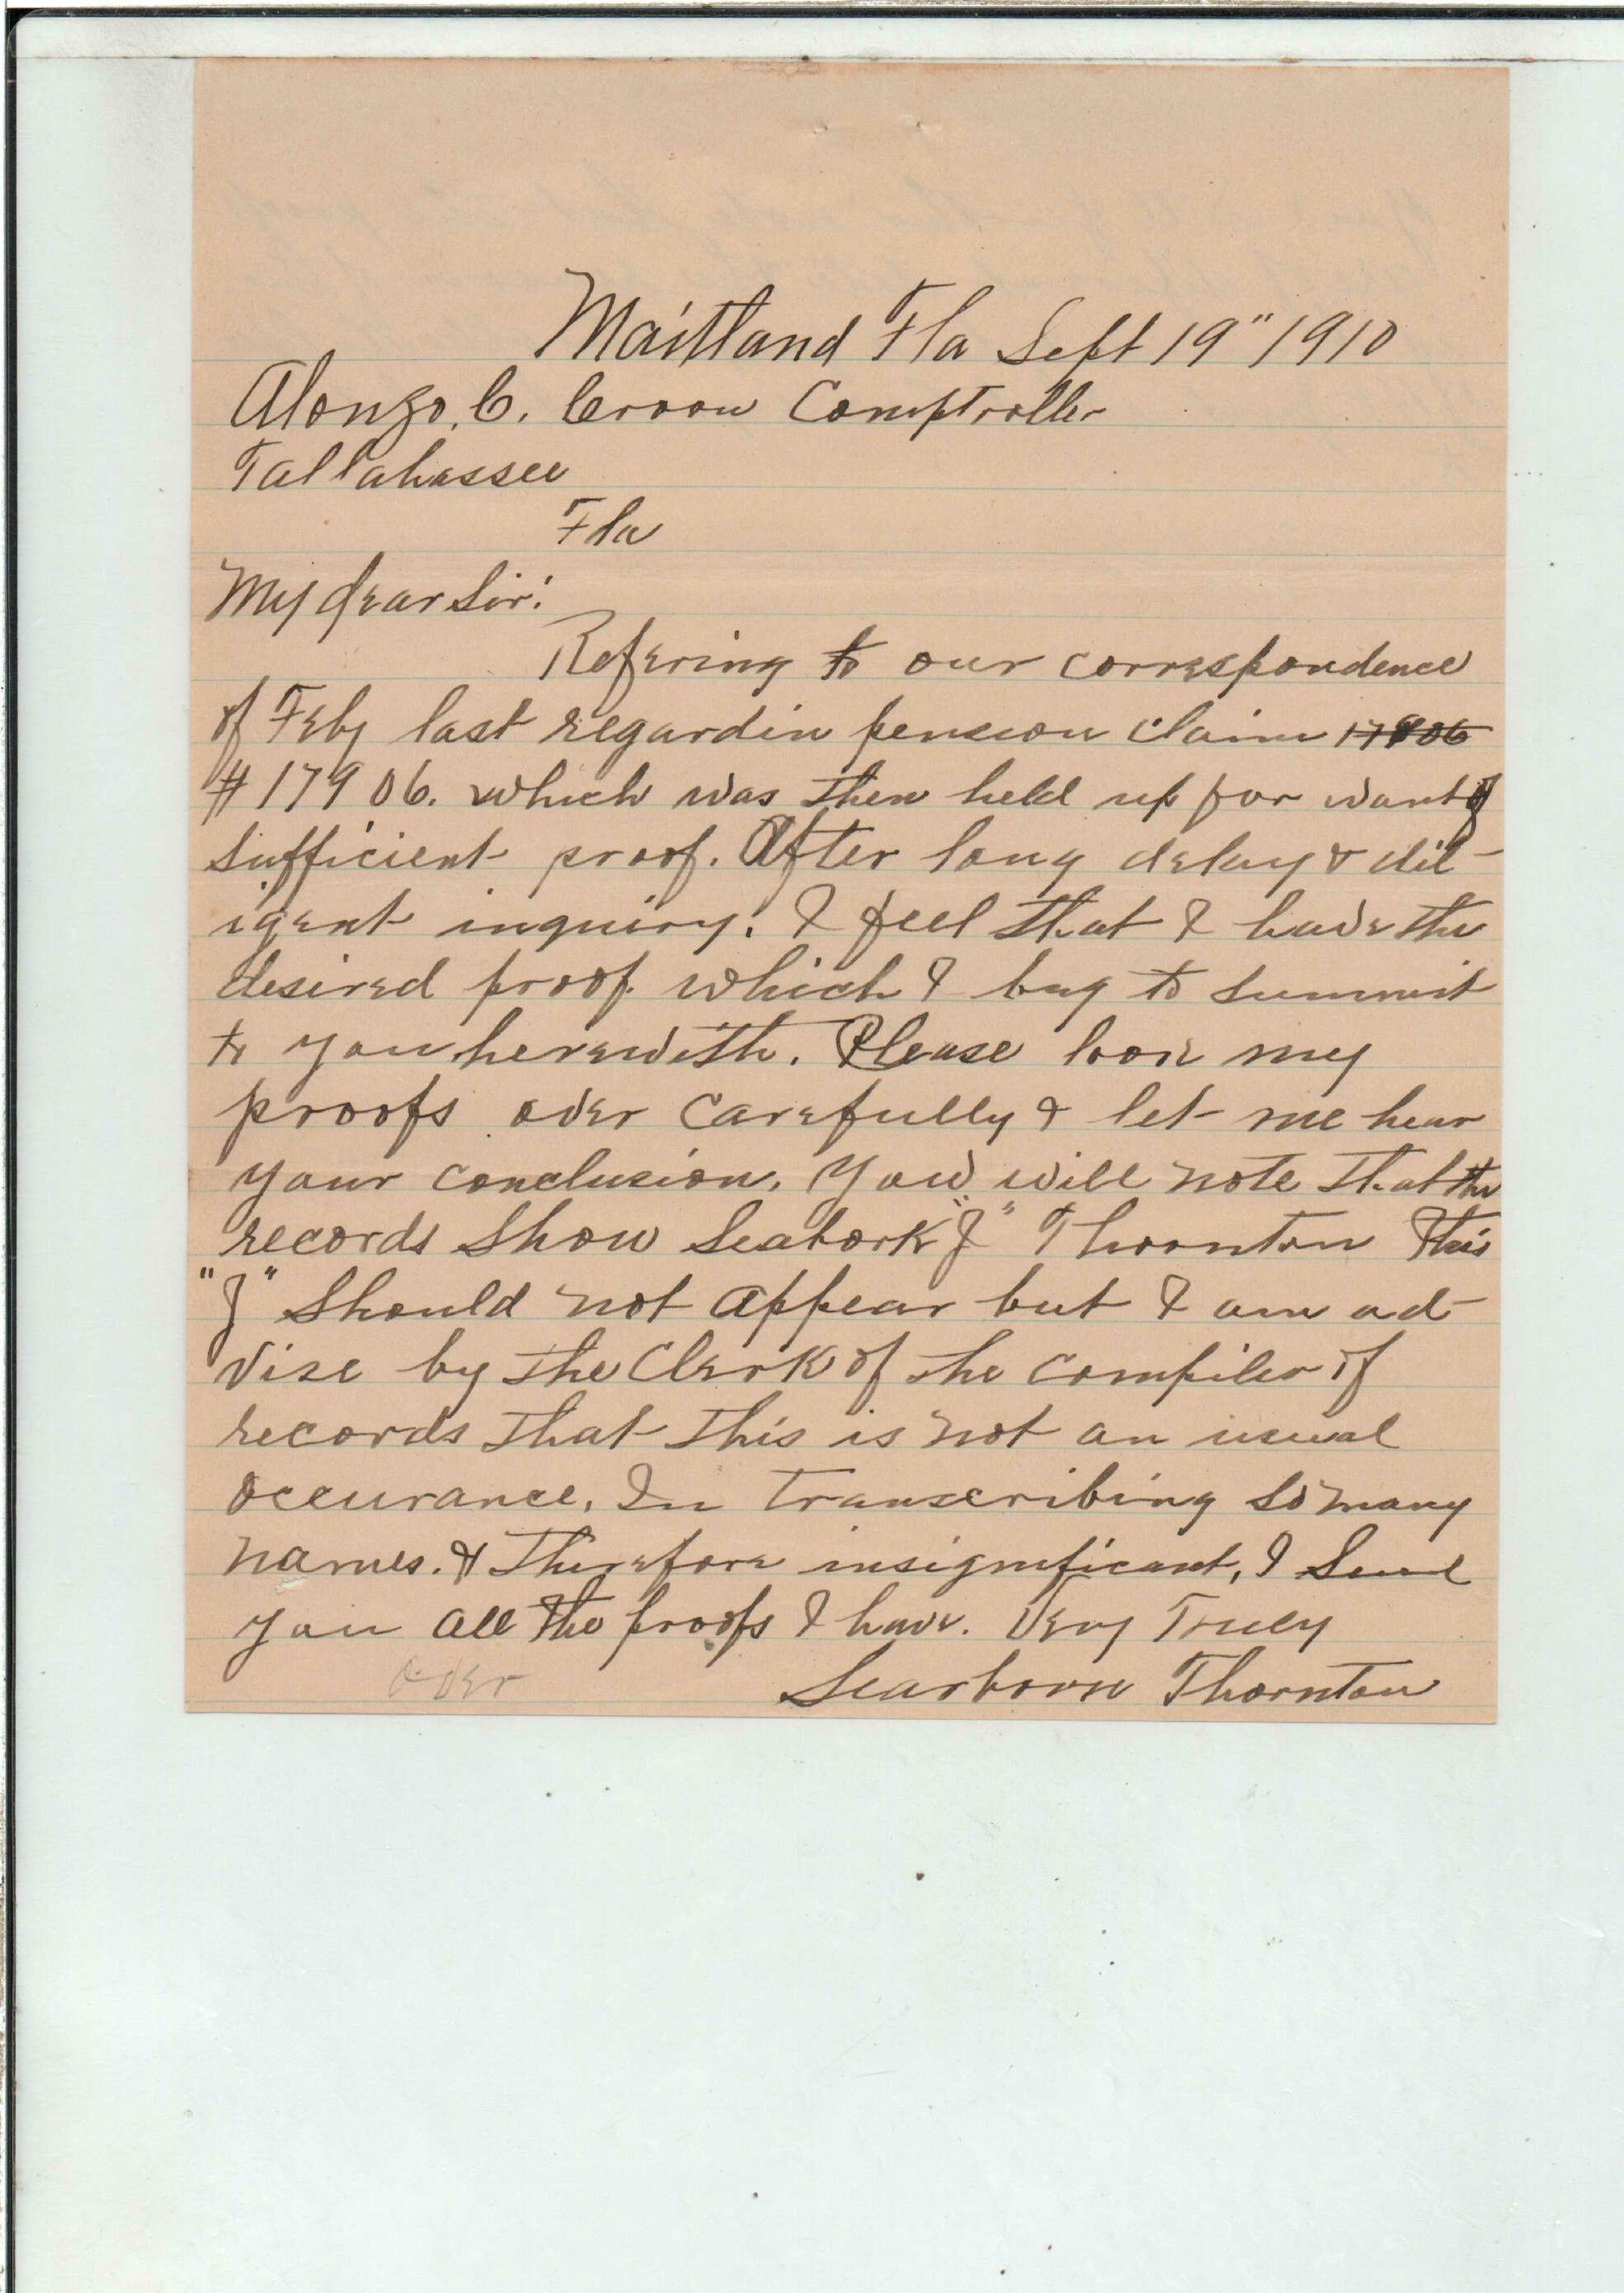 Maitland Fla Sept 19" 1910
Alonzo, C. Croom Comptroller
Tallahassee
Fla
My dear Sir:
Refering to our correspondence
of Feby last regardin pension claim 17906
# 17906. which was then held up for want of
sufficient proof. After long delay & dil-
igent inquiry. I feel that I have the
desired proof. which I beg to summit
to you herewith. Please look my
proofs over carefully & let me hear
your conclusion. You will note that the
records show Seabork "J" Thornton This
"J" should not appear but I am ad-
vise by the Clerk of the compiler of
records that this is not an usual
occurance. In transcribing so many
names. & therefore insignificant, I send
you all the proofs I have. Very Truly
over Searborn Thornton